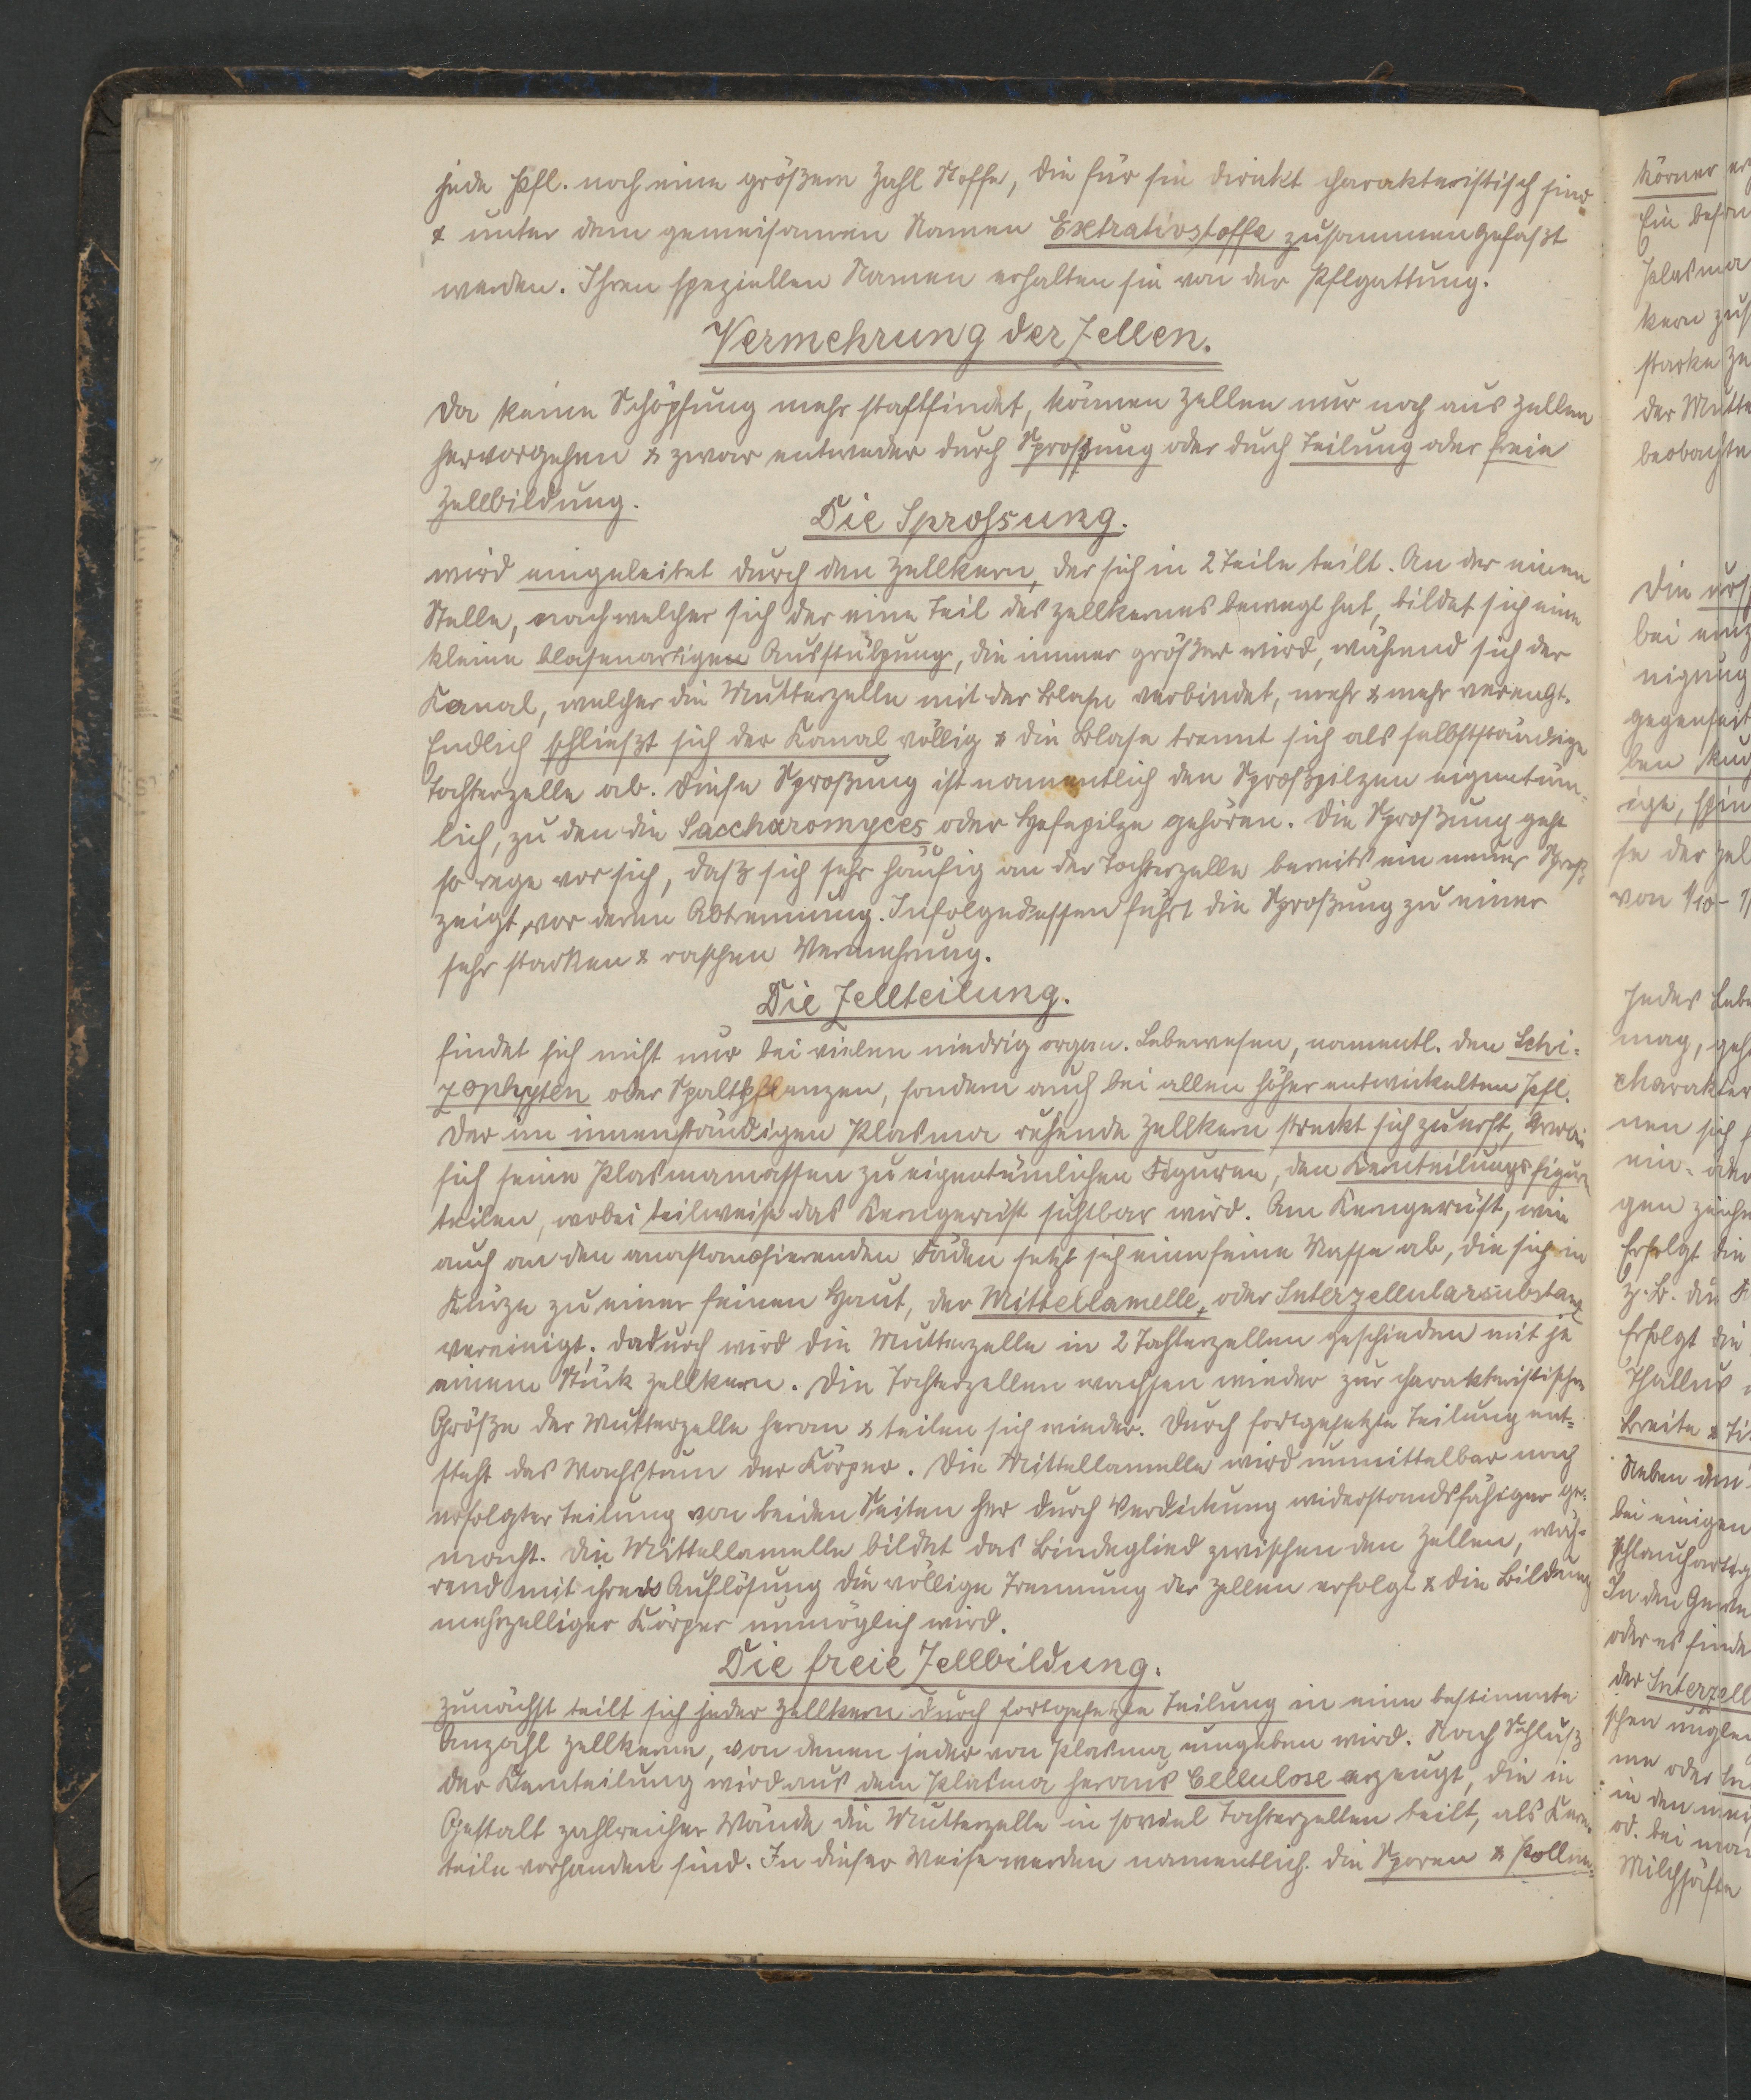 jede Pfl. noch eine größere Zahl Stoffe, die für sie direkt charakteristisch sind
& unter dem gemeisamen Namen Extrativstoffe zusammengefaßt
werden. Ihren speziellen Namen erhalten sie von der Pflgattung.
Vermehrung der Zellen.
Da keine Schöpfung mehr stattfindet, können Zellen nur noch aus Zellen
hervorgehen & zwar entweder durch Sprossung oder durch Teilung oder freie
Zellbildung.
Die Sprossung.
wird eingeleitet durch den Zellkern, der sich in 2 Teile teilt. An der einen
Stelle, nach welcher sich der eine Teil des Zellkernes bewegt hat, bildet sich eine
kleine blasenartige Ausstülpung, die immer größer wird, während sich der
Kanal, welcher die Mutterzelle mit der Blase verbindet, mehr & mehr verengt.
Endlich schließt sich der Kanal völlig & die Blase trennt sich als selbstständige
Tochterzelle ab. Diese Sproßung ist namentlich den Sproßpilzen eigentüm-
lich, zu den die Saccharomyces oder Hefepilze gehören. Die Sproßung geht
so rege vor sich, daß sich sehr häufig an der Tochterzelle bereits ein neuer Sproß
zeigt, vor deren Abtrennung. Infolgedessen führt die Sproßung zu einer
sehr starken & raschen Vermehrung.
Die Zellteilung.
findet sich nicht nur bei vielen niedrig organ. Lebewesen, namentl. den Schi-
zophyten oder Spaltpflanzen, sondern auch bei allen höher entwickelten Pfl.
Der im innenständigen Plasma ruhende Zellkern streckt sich zuerst,
sich seine Plasmamassen zu eigentümlichen Figuren, den Kernteilungsfiguren
teilen, wobei teilweise das Kerngerüst sichtbar wird. Am Kerngerüst, wie
auch an den anastomosierenden Fäden setzt sich eine feine Masse ab, die sich in
Kürze zu einer feinen Haut, der Mittellamelle, oder Interzellularsubstanz
vereinigt; dadurch wird die Mutterzelle in 2 Tochterzellen geschieden mit je
einem Stück Zellkern. Die Tochterzellen wachsen wieder zur charakteristischen
Größe der Mutterzelle heran & teilen sich wieder. Durch fortgesetzte Teilung ent-
steht das Wachstum der Körper. Die Mittellamelle wird unmittelbar nach
erfolgter Teilung von beiden Seiten her durch Verdickung widerstandsfähiger ge-
macht. Die Mittellamelle bildet das Bindeglied zwischen den Zellen, wäh-
rend mit ihrer Auflösung die völlige Trennung der Zellen erfolgt & die Bildung
mehrzelliger Körper unmöglich wird.
Die freie Zellbildung.
Zunächst teilt sich jeder Zellkern durch fortgesetzte Teilung in eine bestimmte
Anzahl Zellkerne, von denen jeder von Plasma umgeben wird. Nach Schluß
der Kernteilung wird aus dem Plasma heraus Cellulose erzeugt, die in
Gestalt zahlreicher Wände die Mutterzelle in soviel Tochterzellen teilt, als Kern-
teile vorhanden sind. In dieser Weise werden namentlich die Sporen & Pollen-
körner
Ein
Plasma
kern
starke
der
beobachte
Die
bei
nigung
gegenseit
ben
ige,
se der
von 1/10 -
Jedes
mag,
charakter
nen sich
ein- oder
gen
Erfolgt die
z.B. die
Erfolgt die
Thallus
Breite &
Neben den
bei einigen
schlauchartig
In den
oder es finde
der Interzell
schen
me oder
in den
od. bei
Milchsäfte